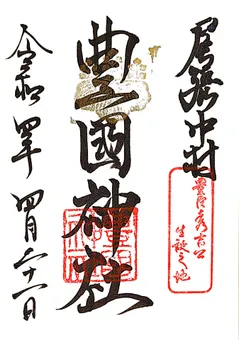 尾張中村
豊臣秀吉公
生誕之地
豊國神社
令和四年 四月二十一日